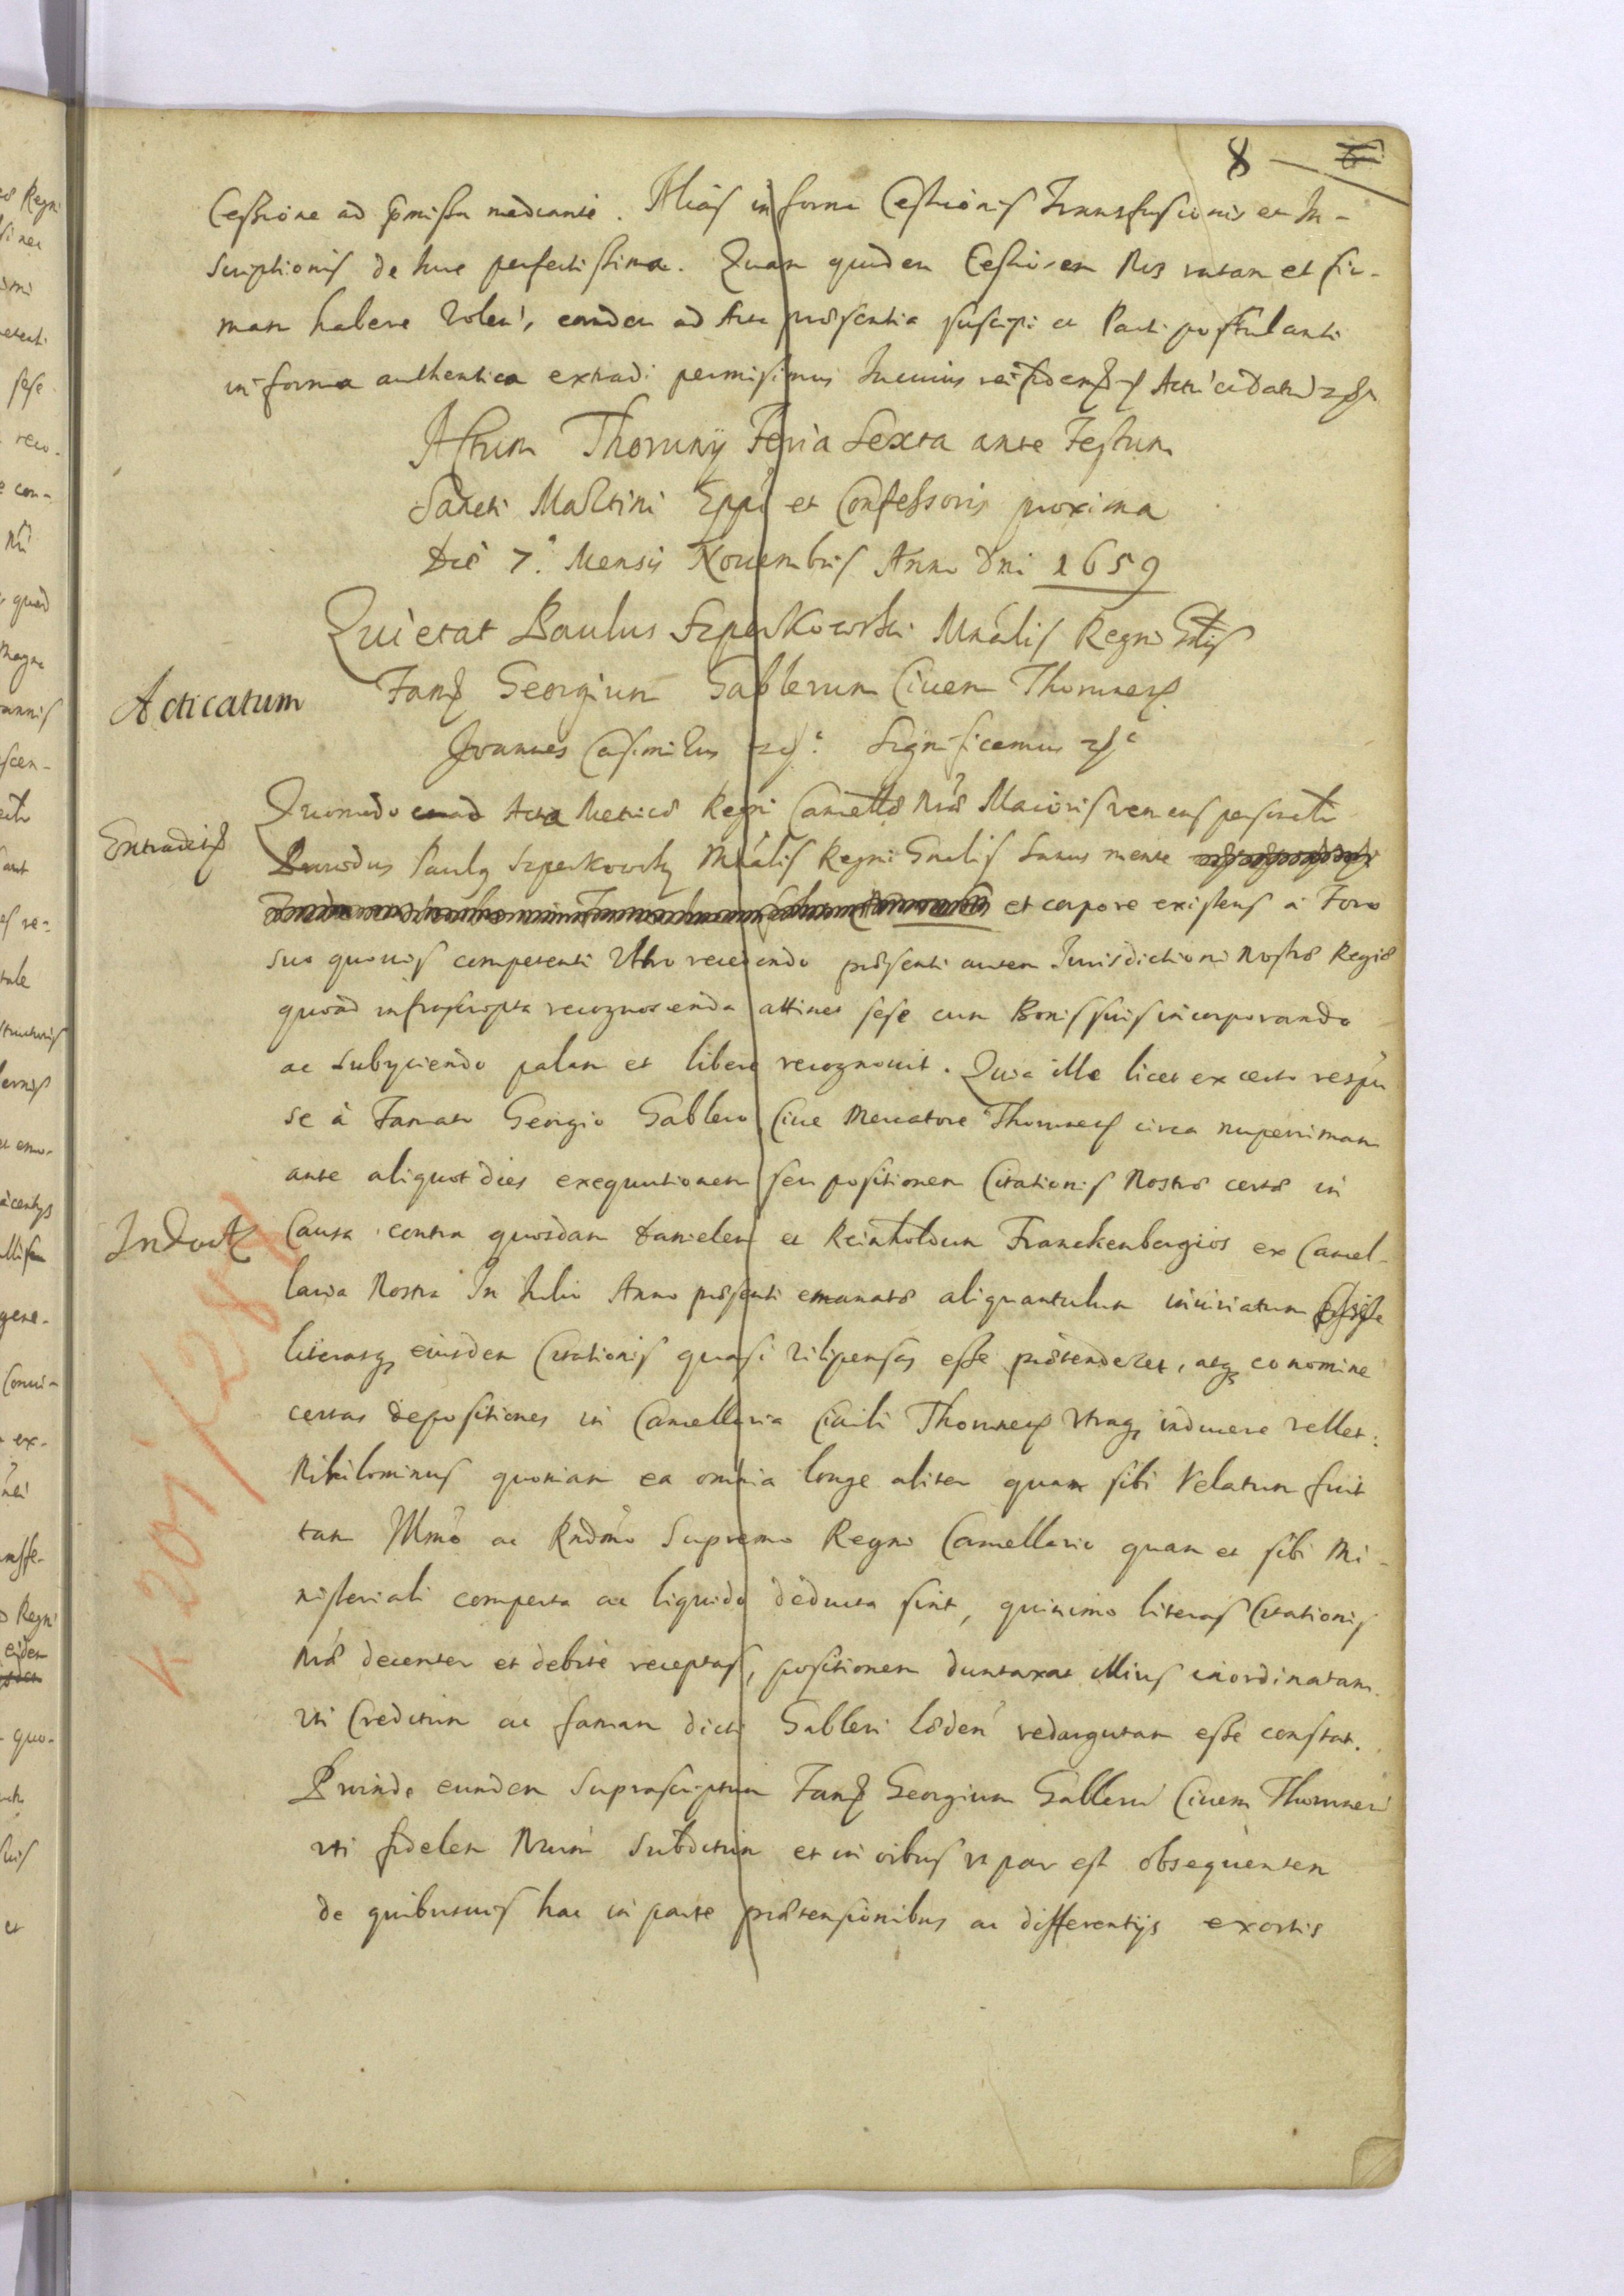 8
Cessione ad præmissa mediante. Alias in forma Cessionis Transfusionis et In-
scriptionis de Iure perfectissima. Quam quidem Cessionem Nos ratam et fir-
mam habere volen, eandem ad Acta præsentia suscipi et Parti postulanti
in forma authentica extradi permisimus In cuius rei fidem Actu et datu
Actum Thorunÿ Feria Sexta ante Festum
Sancti Martini Eppi et Confessoris proxima
Die 7. Mensis Nouembris Anno Dni 1659
Quietat Paulus Szperkowski Mnalis Regni Gnlis
Acticatum
Fam Georgium Gablerum Ciuem Thorunen
Joannes Casimirus Significamus
Quomodo ad Acta Metricæ Regni Cancellæ Nræ Maioris veniens personalr
Extradit
Prouidus Paulq Szperkowsky Mnalis Regni Gnalis Sanus mente
et corpore existens à Foro
suo quouis competenti recedendo præsenti autem Iurisdictioni Nostræ Regiæ
quoad infrascripta recognoscenda attinet sese cum Bonis suis incorporando
ac Subyciendo palam et libere recognouit. Quia ille licet ex certo respu
se à Famato Georgio Gablero Ciue Mercatore Thorunen circa nuperrimam
ante aliquot dies exequutionem seu positionem Citationis Nostræ certæ in
Induct
Causa contra quosdam Danielem et Reinholdum Franckenbergios ex Cancel-
laria Nostra In Julio Anno præsenti emanatæ aliquantulum iniuriatum esse
literasq eiusdem Citationis quasi vilipensas esse prætenderet, atq eo nomine
certas depositiones in Cancellaria Ciuili Thorunen vtrinq inducere vellet:
Nihilominus quoniam ea omnia longe aliter quam sibi relatum fuit
tam Illmo ac Rndmo Supremo Regni Cancellario quam et sibi Mi-
nisteriali comperta ac liquido deducta sint, quinimo literas Citationis
Nræ decenter et debite receptas, positionem duntaxat illius inordinatam
vti Creditum ac famam dicti Gableri læden redargutam esse constat.
Proinde eundem Suprascriptum Fam Georgium Gablerum Ciuem Thorunen
vti fidelem Nrum Subditum et in oibus vt par est obsequentem
de quibusuis hac in parte prætensionibus ac differentijs exortis